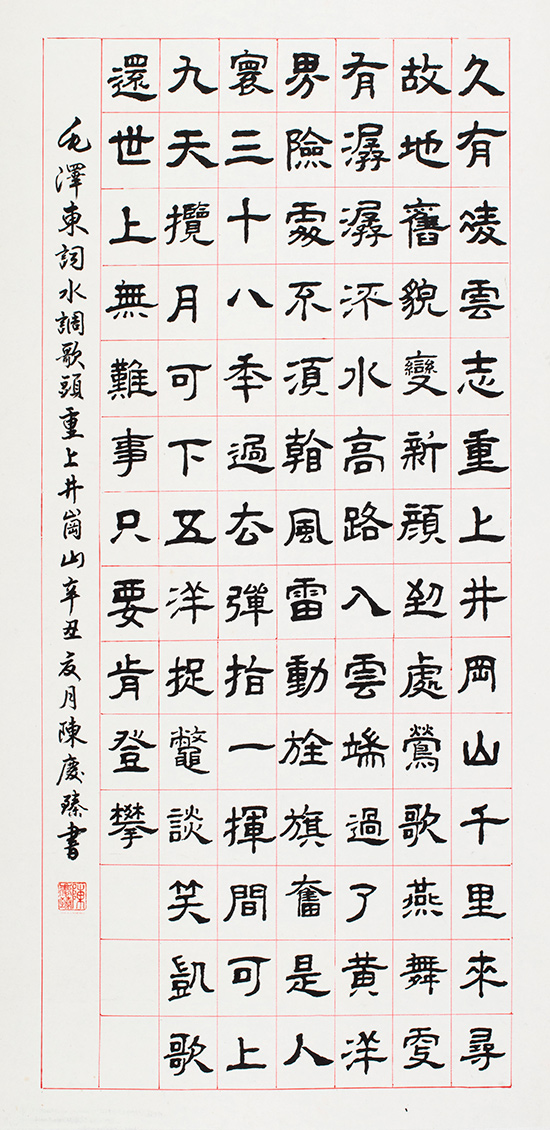 久有凌雲志重上井岡山千里來尋
故地舊貌變新顏到處鶯歌燕舞更
有潺潺流水高路入雲端過了黃洋
界險處不須看風雷動旌旗奮是人
寰三十八年過去彈指一揮間可上
九天攬月可下五洋捉鼈談笑凱歌
還世上無難事只要肯登攀
毛澤東詞水調歌頭重上井崗山辛丑夏月陳慶臻書